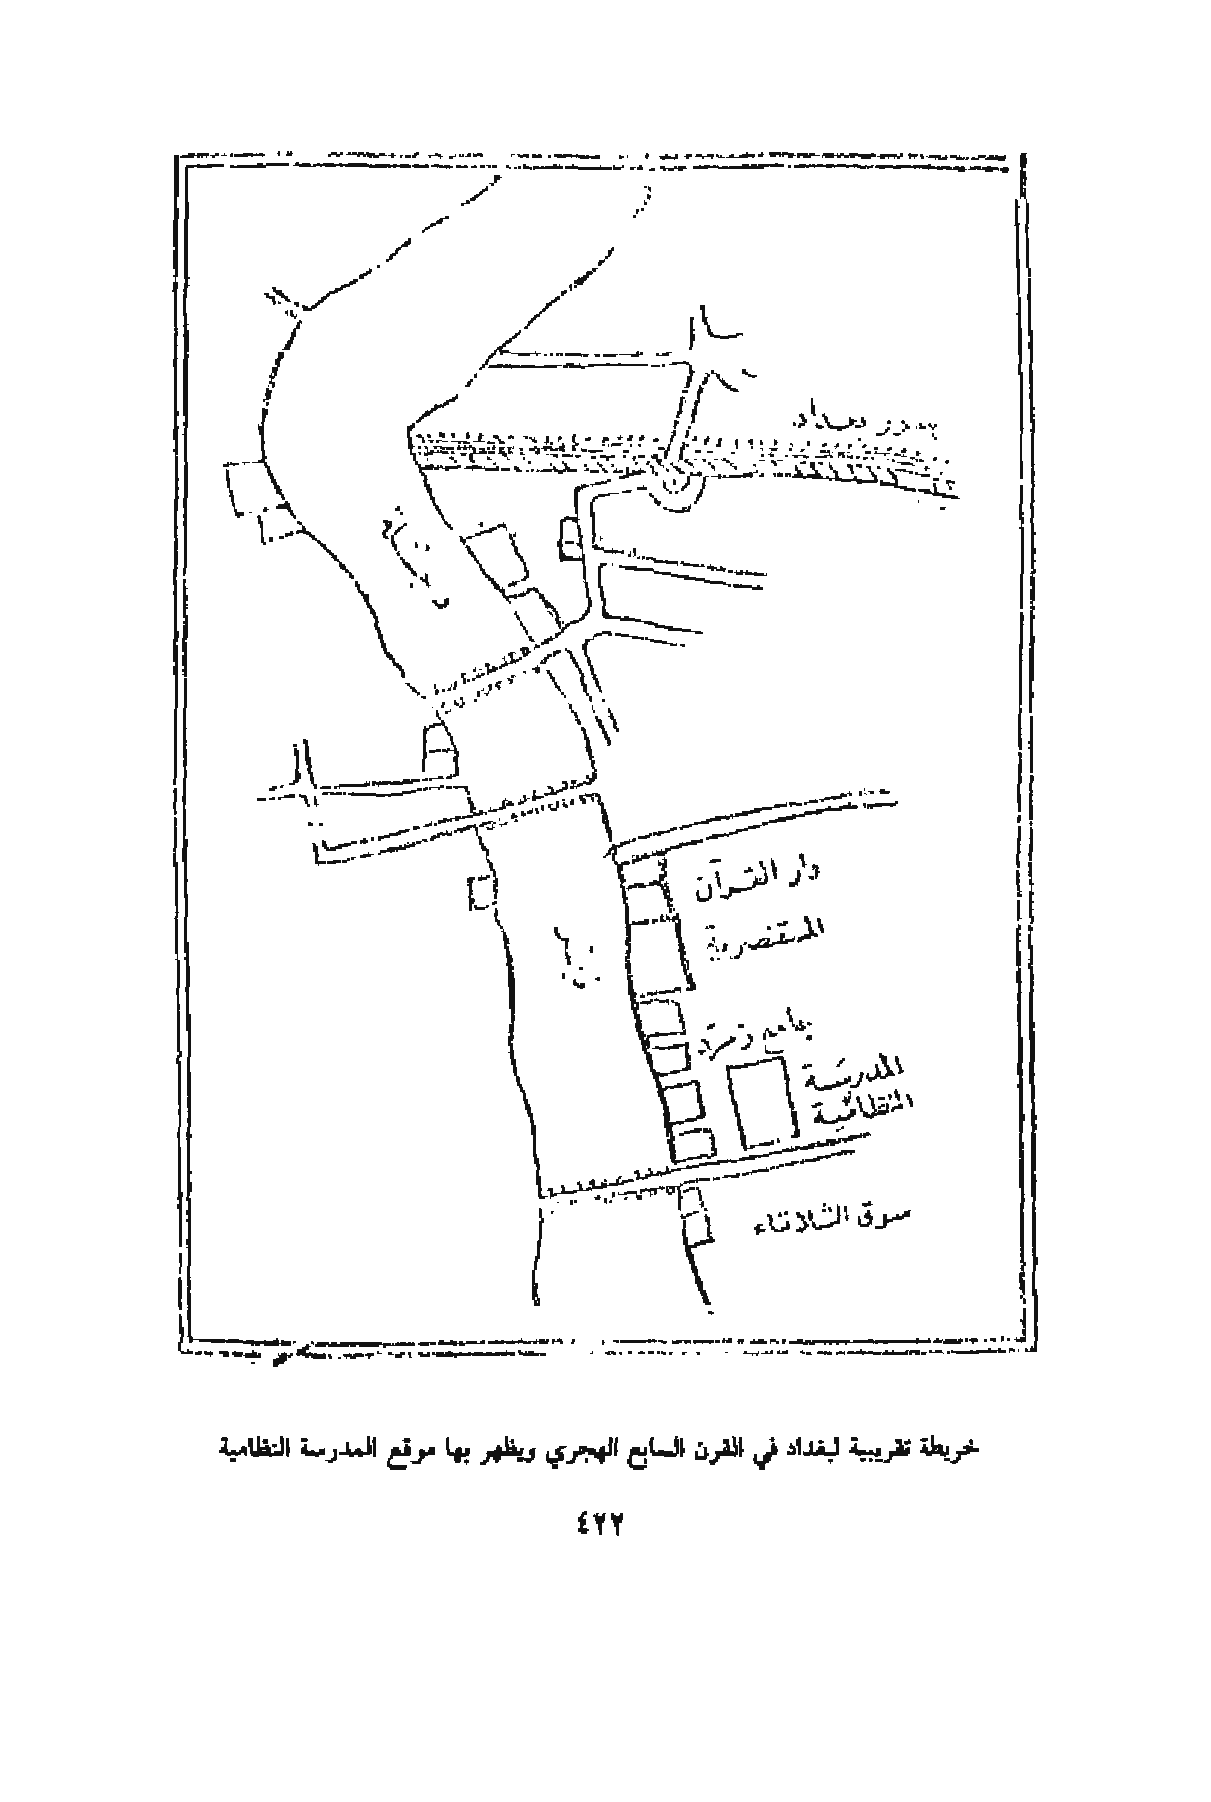 سور بغداد
دار القرآن
المستنصرية
جامع
المدرسة
النظامية
سوق الثلاثاء
خريطة تقريبية لبغداد في القرن السابع الهجري ويظهر بها موقع المدرسة النظامية
٤٢٢